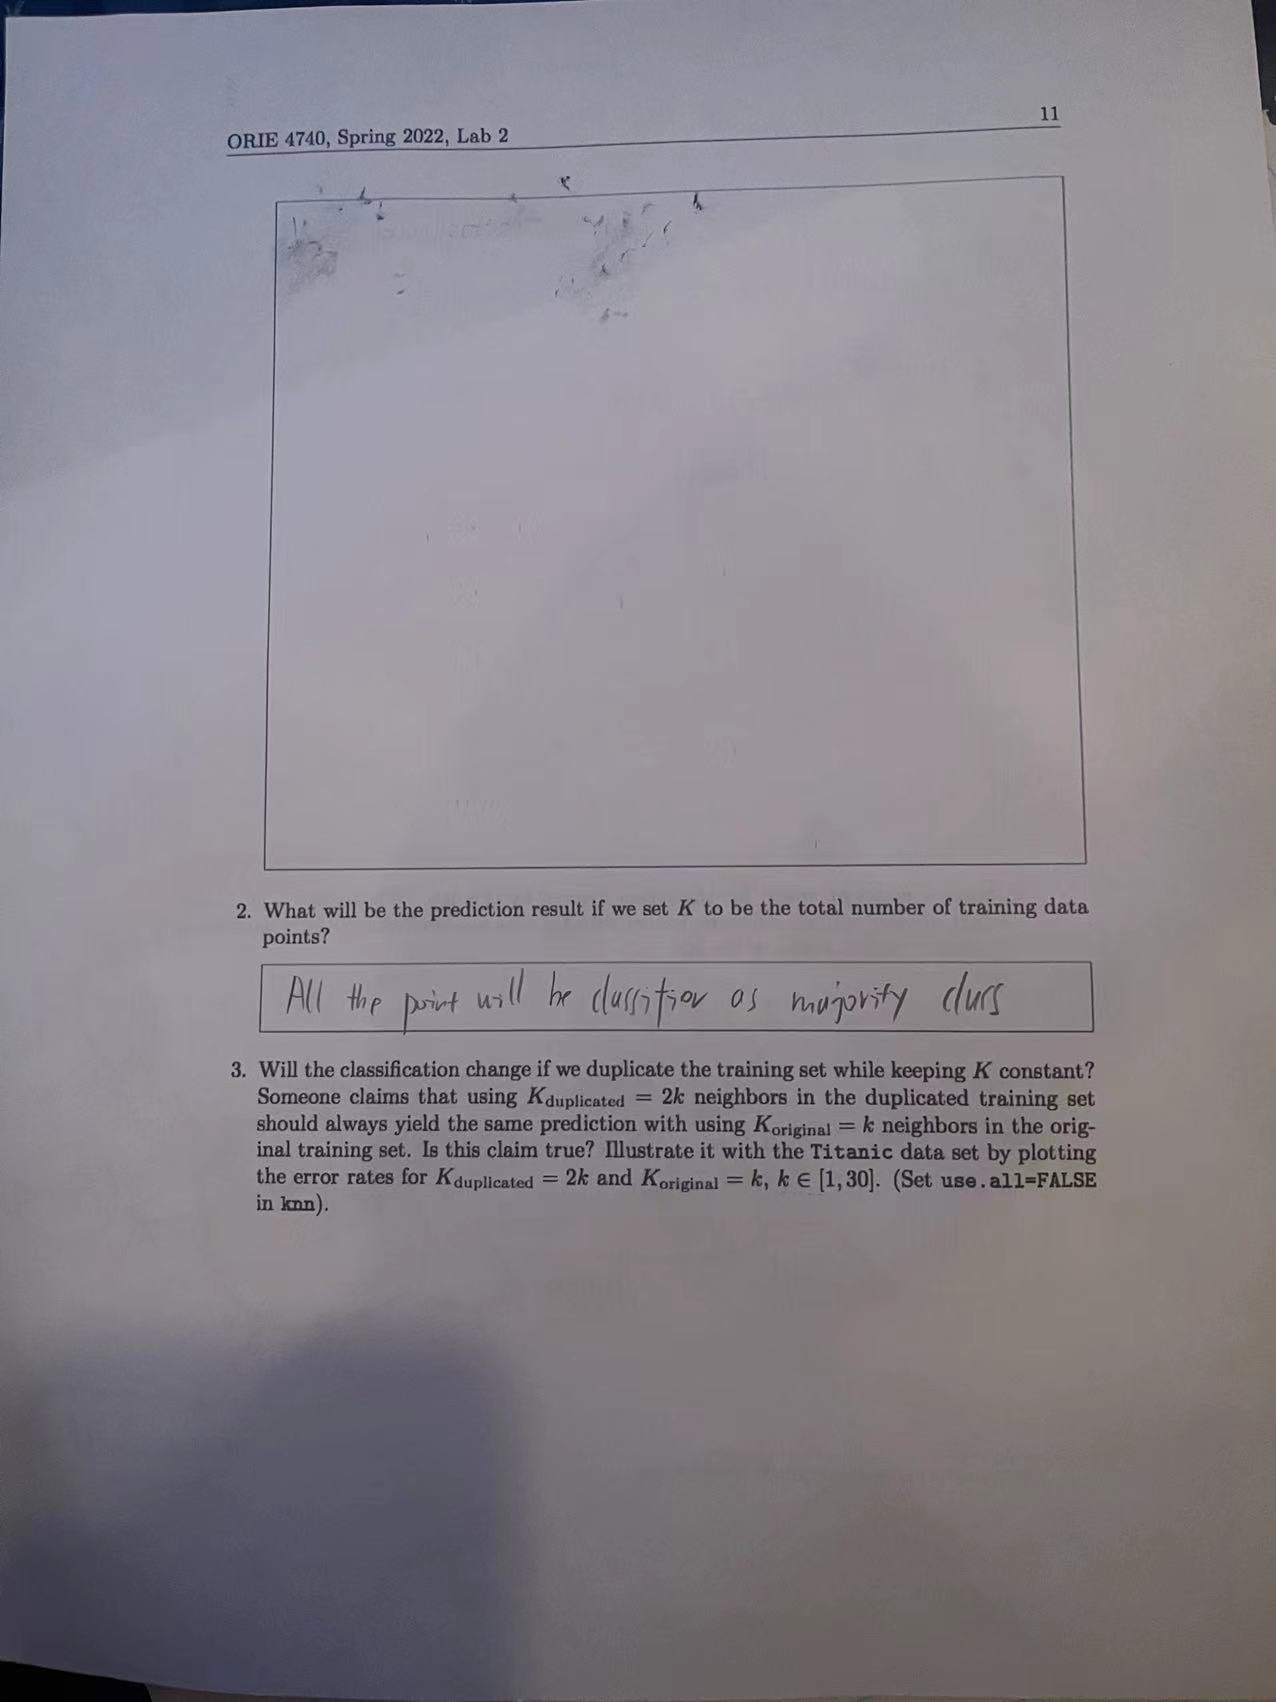 11
ORIE 4740, Spring 2022, Lab 2
2. What will be the prediction result if we set K to be the total number of training data
points?
All the point will be classifier as majority class
3. Will the classification change if we duplicate the training set while keeping K constant?
Someone claims that using Kduplicated = 2k neighbors in the duplicated training set
should always yield the same prediction with using Koriginal = k neighbors in the orig-
inal training set. Is this claim true? Illustrate it with the Titanic data set by plotting
the error rates for Kduplicated = 2k and Koriginal = k, k ∈ [1, 30]. (Set use.all=FALSE
in knn).